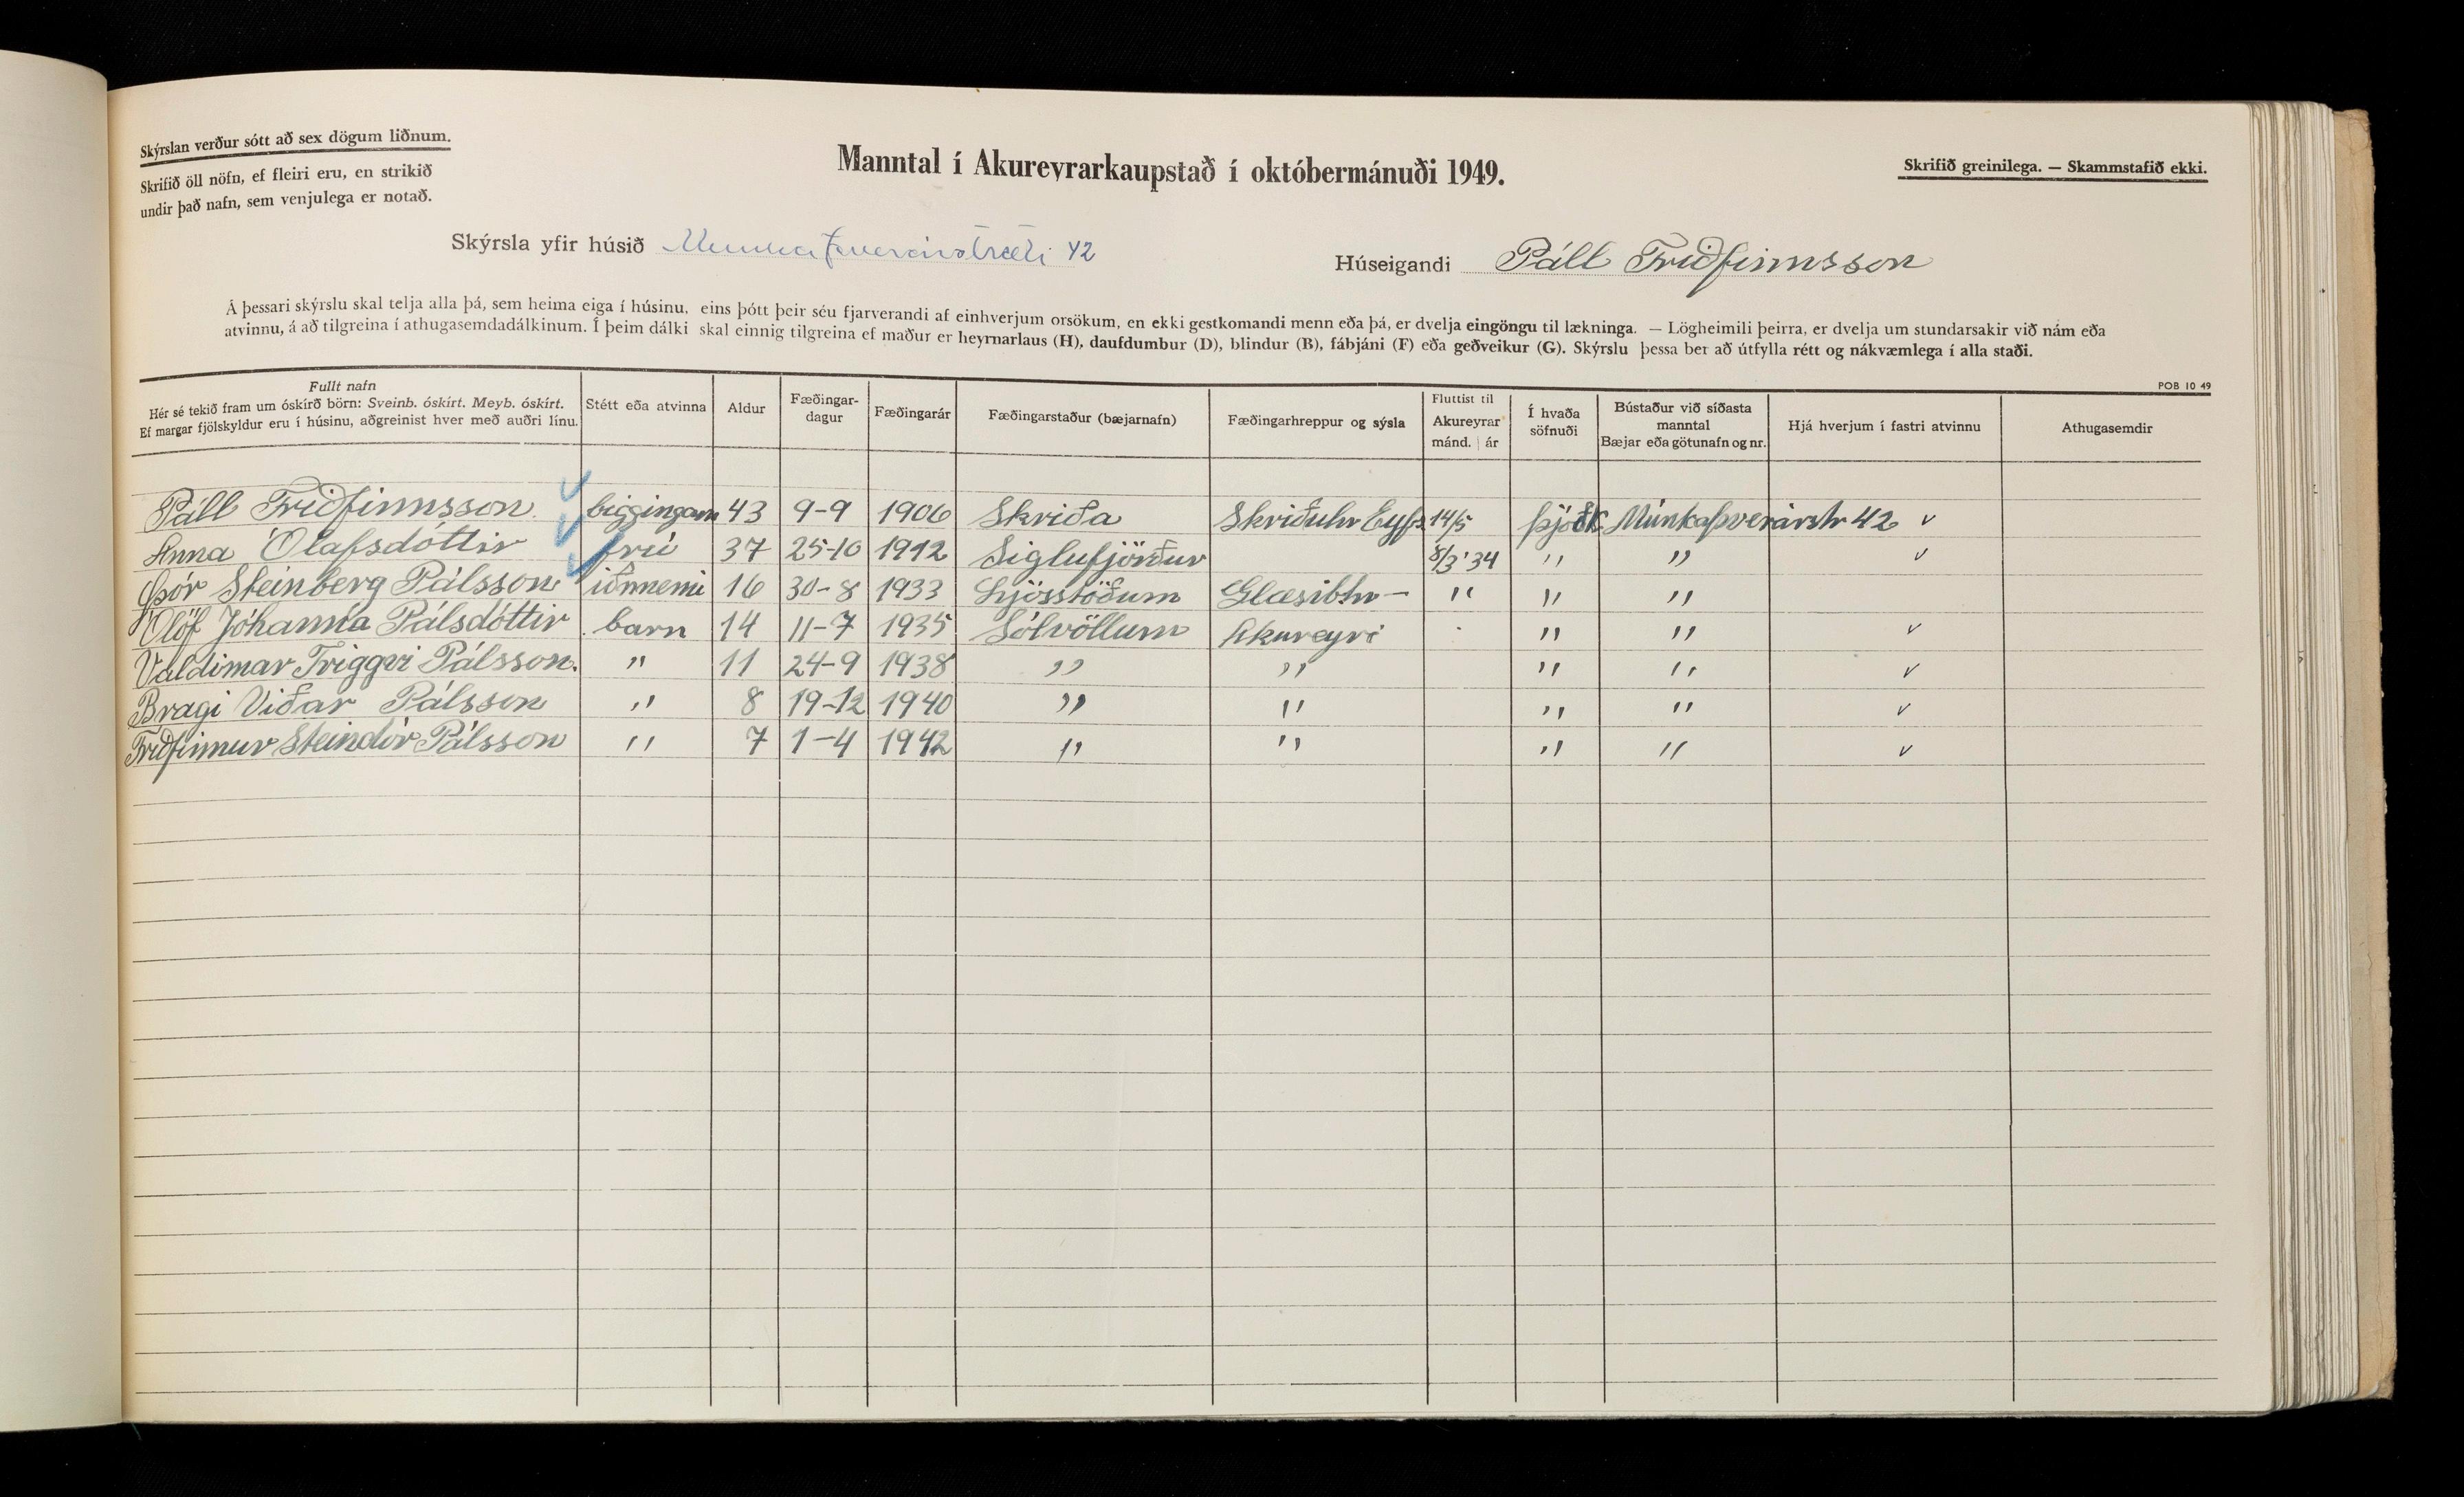 Skýrslan verður sótt að sex dögum liðnum.
Skrifið öll nöfn, ef fleiri eru, en strikið
undir það nafn, sem venjulega er notað.
Manntal í Akureyrarkaupstað í októbermánuði 1949.
Skrifið greinilega. — Skammstafið ekki.
Skýrsla yfir húsið Munkaþverárstræti 42
Húseigandi Páll Friðfinnsson
Á þessari skýrslu skal telja alla þá, sem heima eiga í húsinu, eins þótt þeir séu fjarverandi af einhverjum orsökum, en ekki gestkomandi menn eða þá, er dvelja eingöngu til lækninga. — Lögheimili þeirra, er dvelja um stundarsakir við nám eða
atvinnu, á að tilgreina í athugasemdadálkinum. Í þeim dálki skal einnig tilgreina ef maður er heyrnarlaus (H), daufdumbur (D), blindur (B), fábjáni (F) eða geðveikur (G). Skýrslu þessa ber að útfylla rétt og nákvæmlega í alla staði.
POB 10 49
Fullt nafn
Hér sé tekið fram um óskírð börn: Sveinb. óskírt. Meyb. óskírt.
Ef margar fjölskyldur eru í húsinu, aðgreinist hver með auðri línu.
Stétt eða atvinna
Aldur
Fæðingar-
dagur
Fæðingarár
Fæðingarstaður (bæjarnafn)
Fæðingarhreppur og sýsla
Fluttist til
Akureyrar
mánd. | ár
Í hvaða
söfnuði
Bústaður við síðasta
manntal
Bæjar eða götunafn og nr.
Hjá hverjum í fastri atvinnu
Athugasemdir
Páll Friðfinnsson biggingam 43 9-9 1906 Skriða Skriðuhr Eyfs 14/5 þjóðk Múnkaþverárstr 42 v
Anna Ólafsdóttir frú 37 25-10 1912 Siglufjörður 8/3 '34 " " v
Þór Steinberg Pálsson iðnnemi 16 30-8 1933 Ljósstöðum Glæsibhr — " " "
Ólöf Jóhanna Pálsdóttir barn 14 11-7 1935 Sólvöllum Akureyri " " v
Valdimar Triggvi Pálsson. " 11 24-9 1938 " " " " v
Bragi Viðar Pálsson " 8 19-12 1940 " " " " v
Friðfinnur Steindór Pálsson " 7 1-4 1942 " " " " v